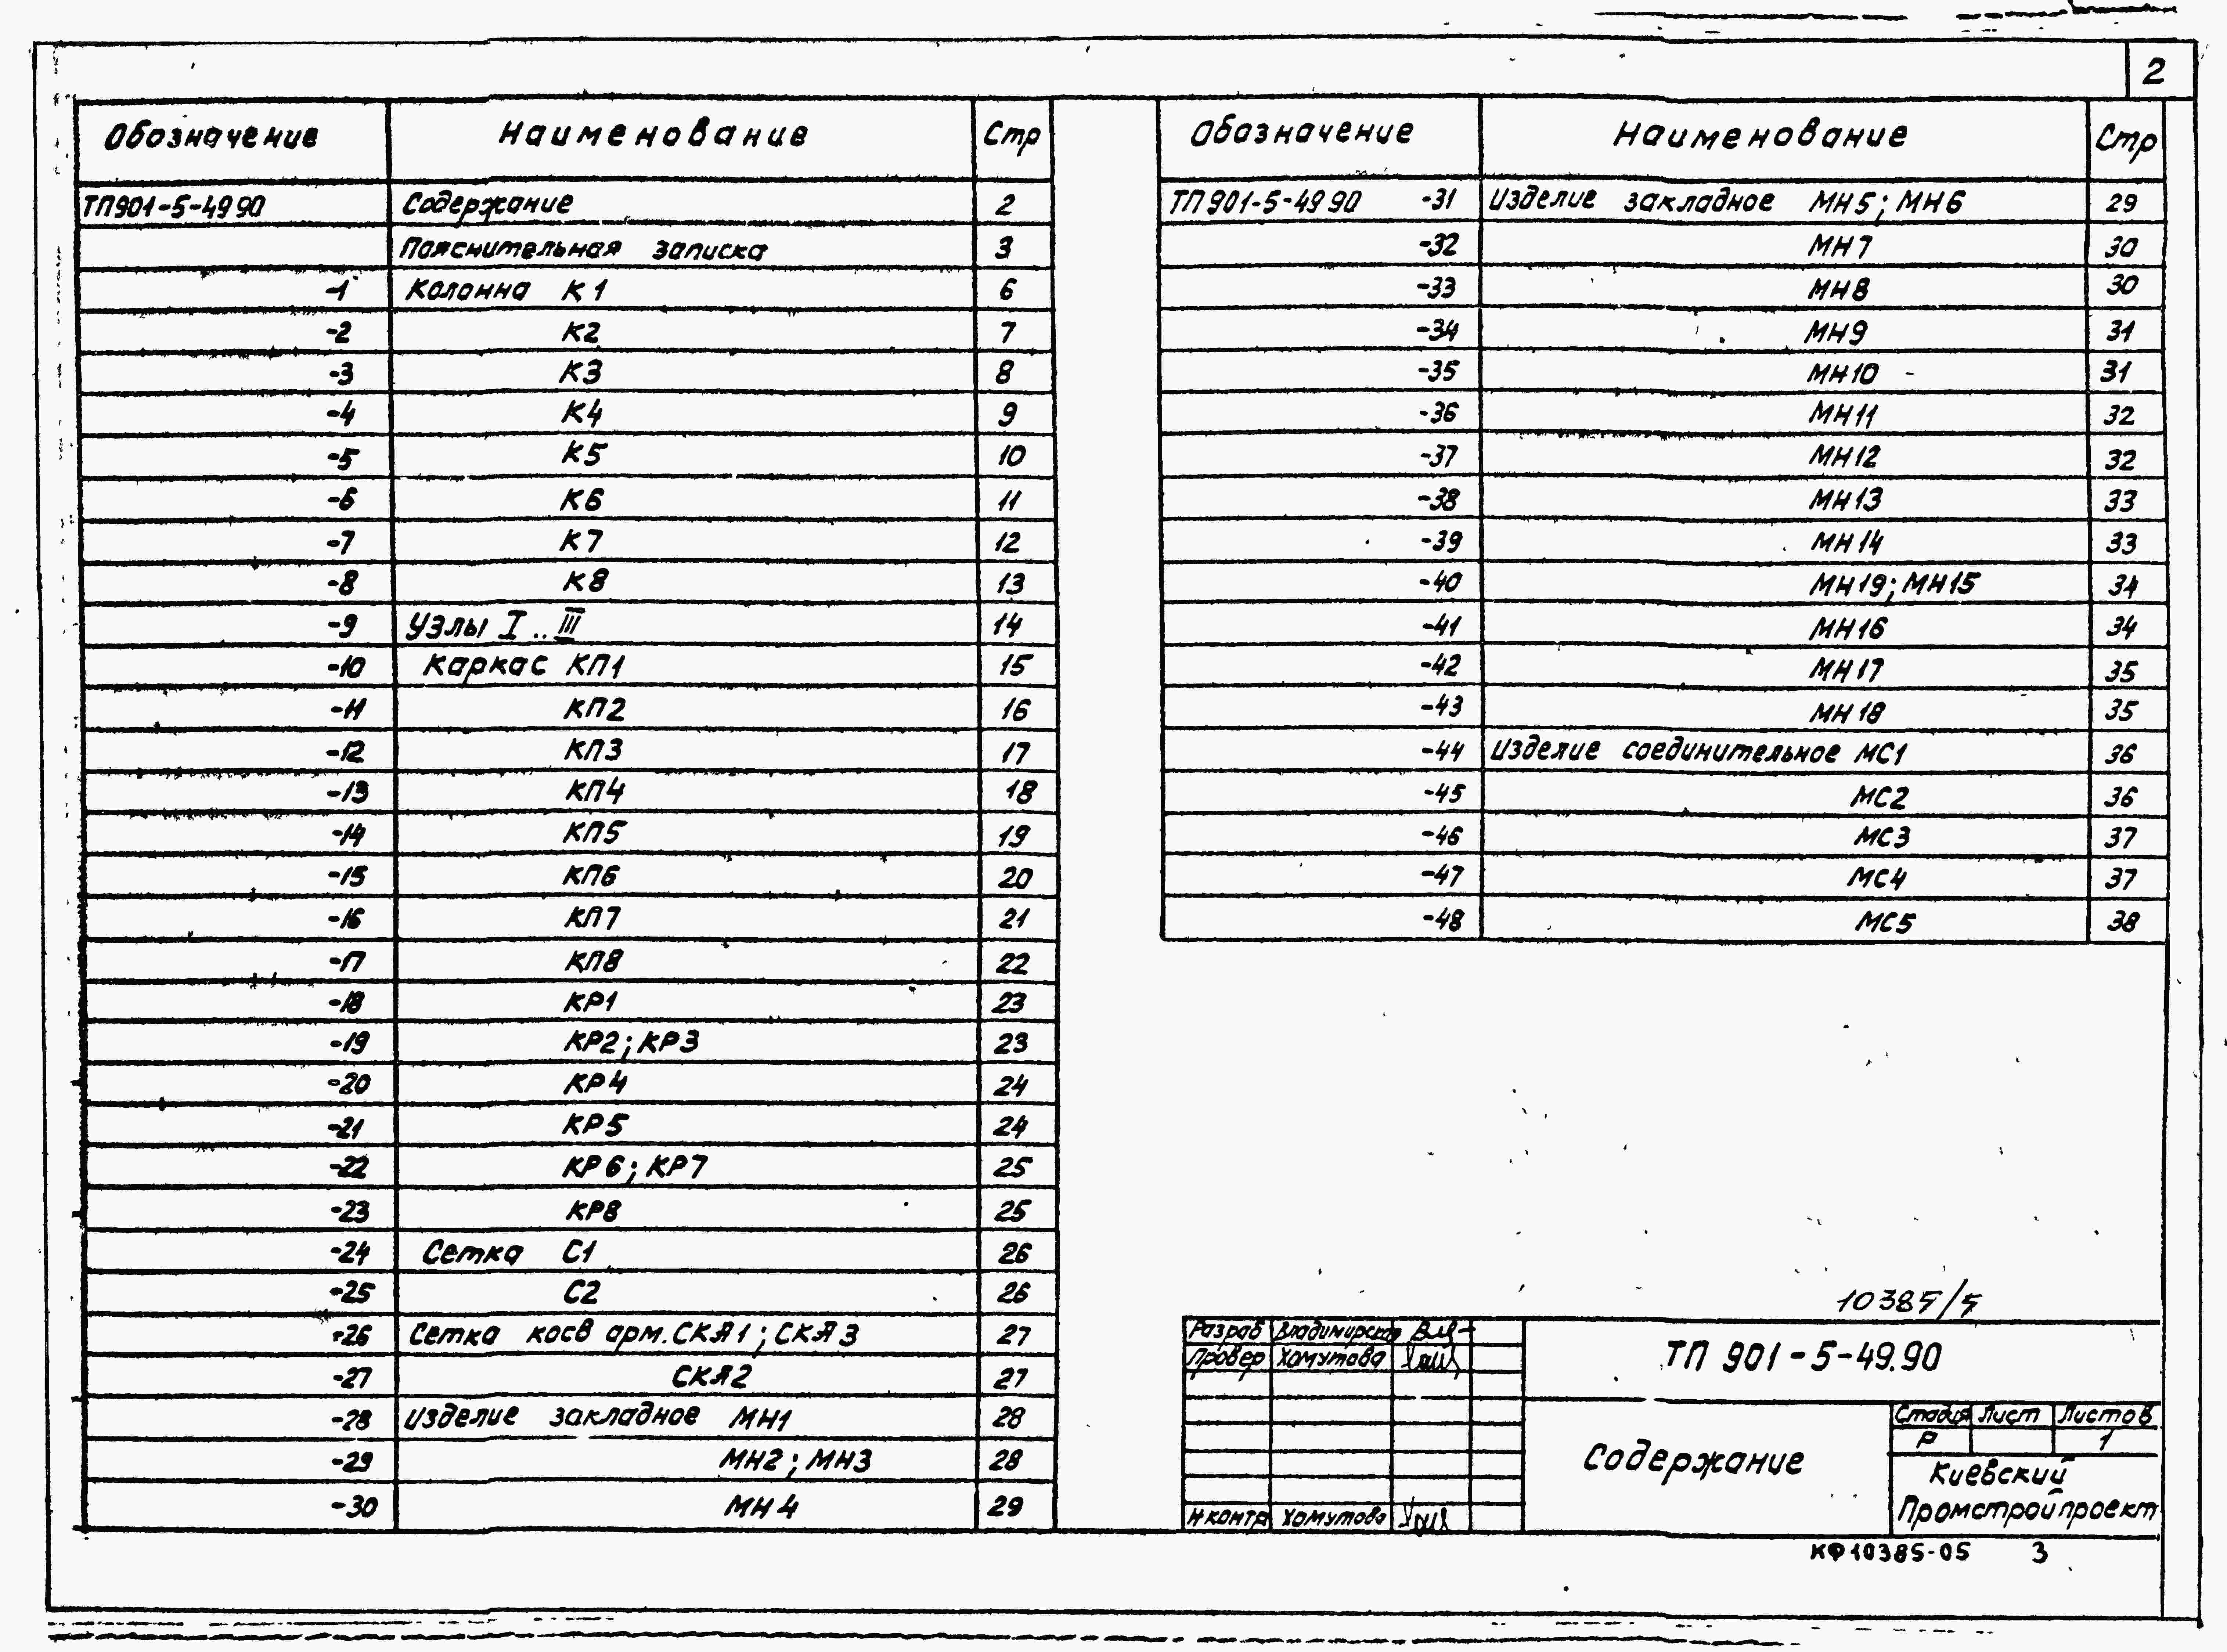 2
Обозначение Наименование Стр
ТП901-5-4990 Содержание 2
Пояснительная записка 3
-1 Колонна К1 6
-2 К2 7
-3 К3 8
-4 К4 9
-5 К5 10
-6 К6 11
-7 К7 12
-8 К8 13
-9 Узлы I..III 14
-10 Каркас КП1 15
-11 КП2 16
-12 КП3 17
-13 КП4 18
-14 КП5 19
-15 КП6 20
-16 КП7 21
-17 КП8 22
-18 КР1 23
-19 КР2; КР3 23
-20 КР4 24
-21 КР5 24
-22 КР6; КР7 25
-23 КР8 25
-24 Сетка С1 26
-25 С2 26
-26 Сетка косв арм. СКА1; СКА3 27
-27 СКА2 27
-28 Изделие закладное МН1 28
-29 МН2; МН3 28
-30 МН4 29
Обозначение Наименование Стр
ТП901-5-4990 -31 Изделие закладное МН5; МН6 29
-32 МН7 30
-33 МН8 30
-34 МН9 31
-35 МН10 31
-36 МН11 32
-37 МН12 32
-38 МН13 33
-39 МН14 33
-40 МН19; МН15 34
-41 МН16 34
-42 МН17 35
-43 МН18 35
-44 Изделие соединительное МС1 36
-45 МС2 36
-46 МС3 37
-47 МС4 37
-48 МС5 38
10385/5
Разраб Владимирская
Провер Хомутова
Н контр Хомутова
ТП 901-5-49.90
Содержание
Стадия Лист Листов
Р 1
Киевский
Промстройпроект
КФ10385-05 3